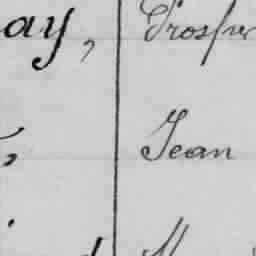 ay, Prosper
, Jean